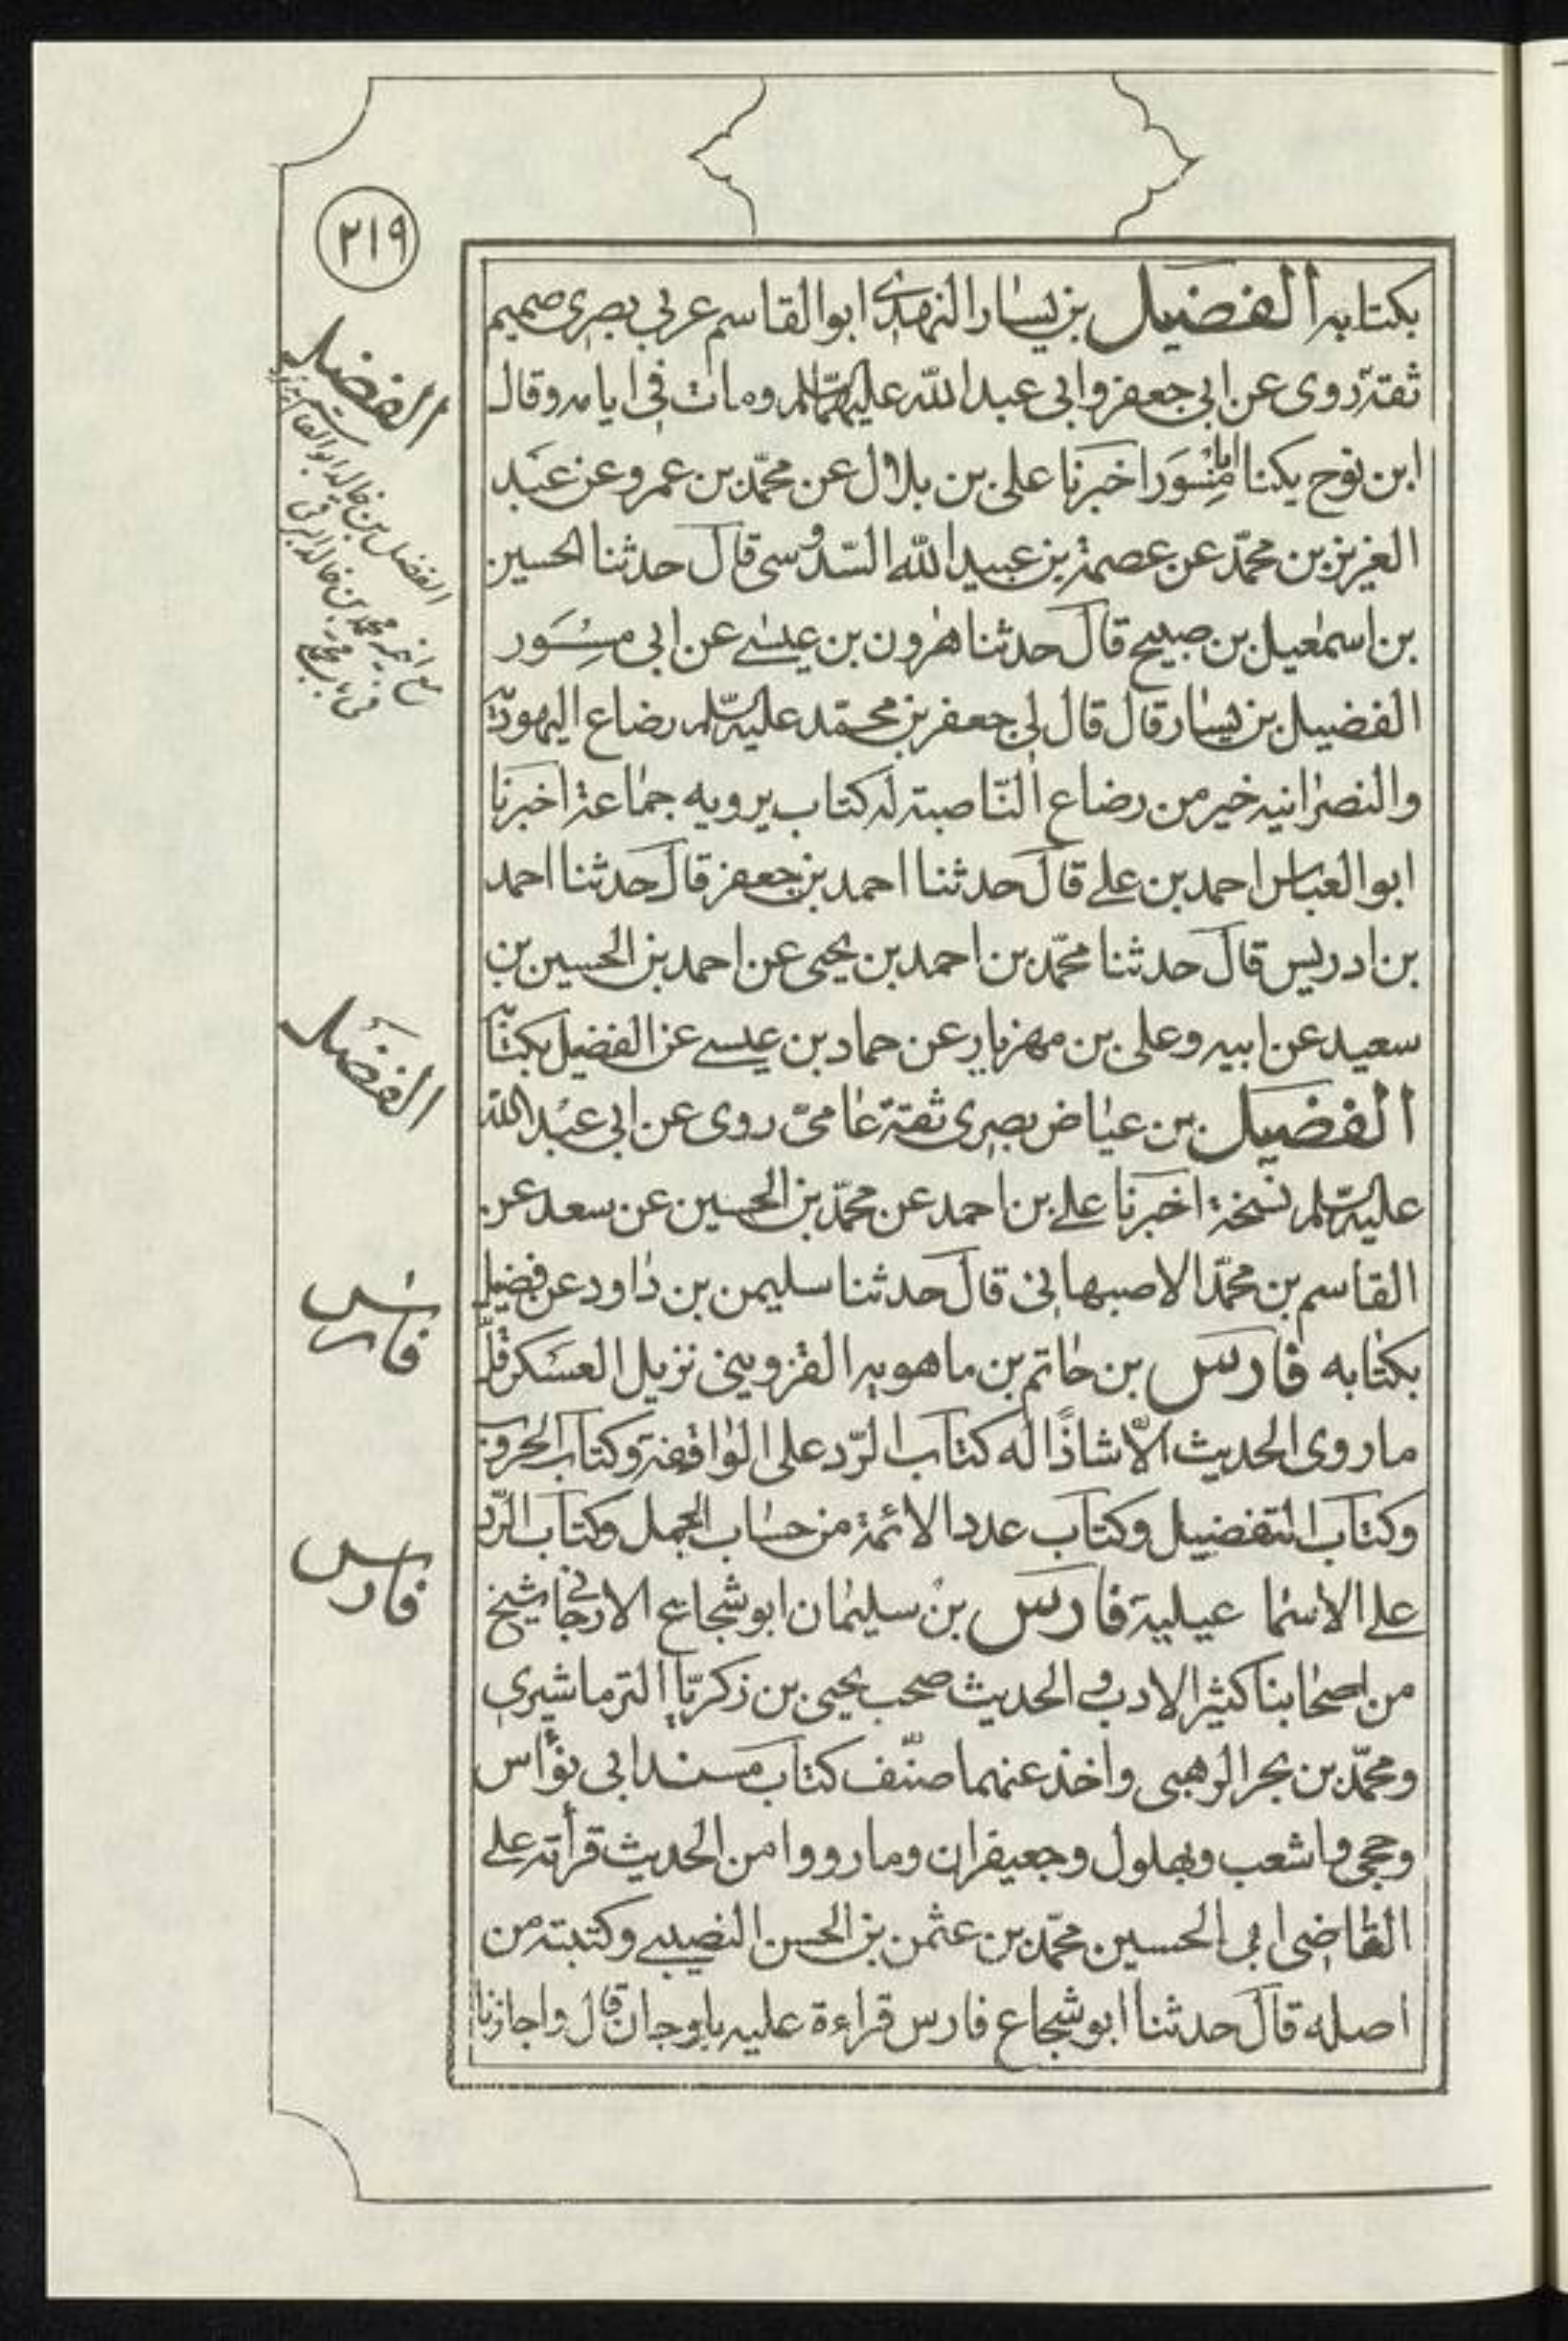 ٢١٩
بكتابه الفضيل بن يسار النهدى ابو القاسم عربى بصرى صميم
ثقة روى عن ابى جعفر وابى عبد الله عليهما السلم ومات فى ايامه وقال
ابن نوح يكنا ابا مِسْوَر اخبرنا على بن بلال عن محمّد بن عمرو عن عبد
العزيز بن محمّد عن عصمة بن عبيد الله السّدوسى قال حدثنا الحسين
بن اسمعيل بن صبيح قال حدثنا هرون بن عيسى عن ابى مِسْوَر
الفضيل بن يسار قال قال لى جعفر بن محمّد عليه السّلم رضاع اليهوديّة
والنصرانيه خير من رضاع النّاصبة له كتاب يرويه جماعة اخبرنا
ابو العباس احمد بن على قال حدثنا احمد بن جعفر قال حدثنا احمد
بن ادريس قال حدثنا محمّد بن احمد بن يحيى عن احمد بن الحسين بن
سعيد عن ابيه وعلى بن مهزيار عن حماد بن عيسى عن الفضيل بكتابه
الفضيل بن عياض بصرى ثقة عامىّ روى عن ابى عبد الله
عليه السّلم نسخة اخبرنا على بن احمد عن محمّد بن الحسين عن سعد عن
القاسم بن محمّد الاصبهانى قال حدثنا سليمن بن داود عن فضيل
بكتابه فارس بن حاتم بن ماهويه القزوينى نزيل العسكر قلّ
ما روى الحديث الّا شاذًا له كتاب الرّد على الواقفة وكتاب الحروب
وكتاب التفضيل وكتاب عدد الائمة من حساب الجمل وكتاب الرّد
على الاسماعيلية فارس بن سليمان ابو شجاع الارجانى شيخ
من اصحابنا كثير الادب والحديث صحب يحيى بن زكريّا الترماشيرى
ومحمّد بن بحر الرهبى واخذ عنهما صنّف كتاب مسند ابى نؤاس
وحجى واشعب وبهلول وجعيفران وما رووا من الحديث قرأته على
القاضى ابى الحسين محمّد بن عثمن بن الحسن النصيبى وكتبته من
اصله قال حدثنا ابو شجاع فارس قراءة عليه باوجان قال واجازنا
الفضيل
الفضل بن خالد ابو القاسم
مع اخيه محمد بن خالد البرقى
فى باب محمّد
الفضيل
فارس
فارس